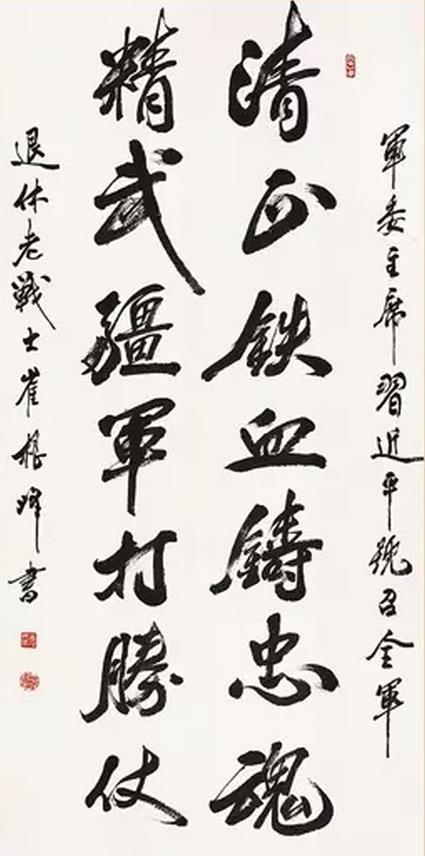 軍委主席習近平號召全軍
清正铁血鑄忠魂
精武疆軍打勝仗
退休老戰士崔根峰書